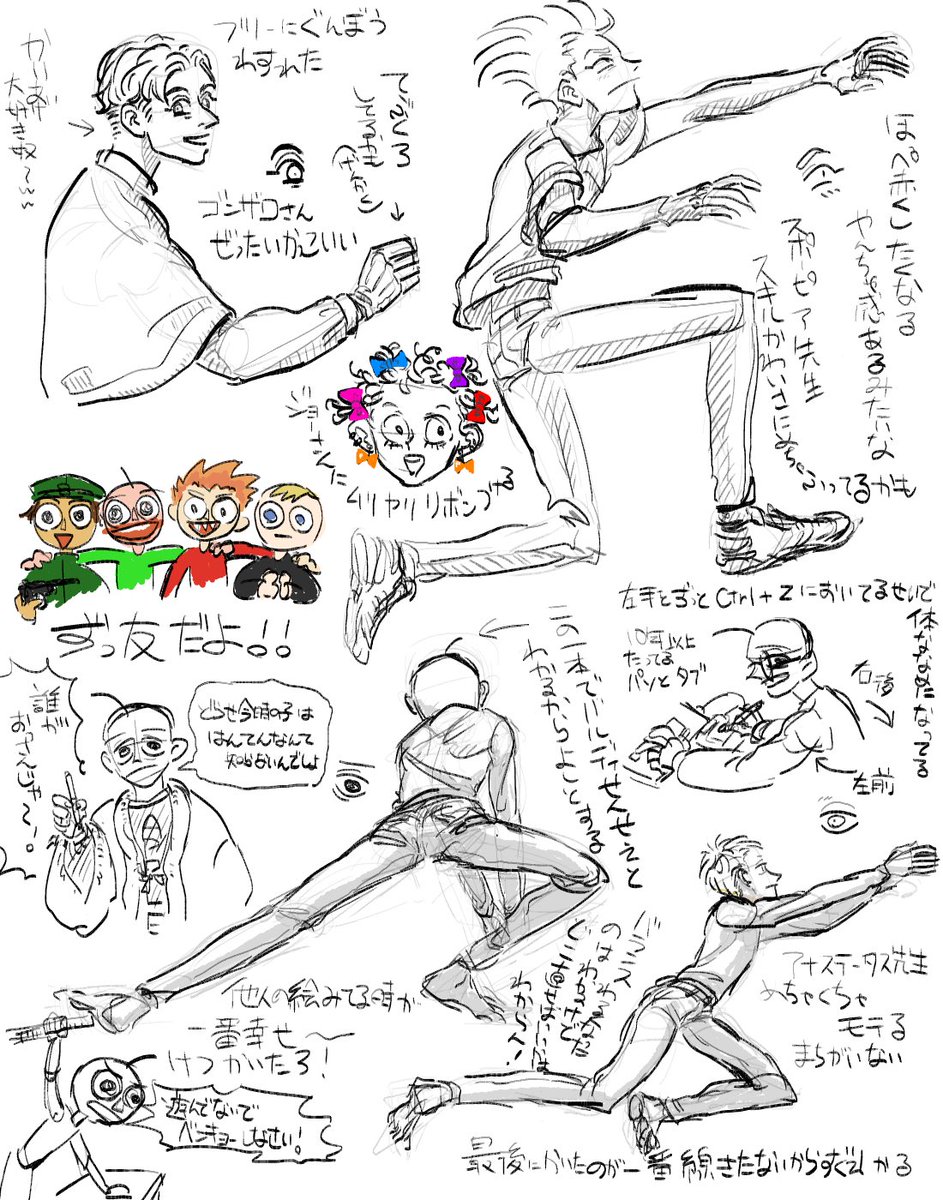 フリーにぐんぼう
わすれた
かりあげ
大好き奴〜
てぶくろ
してるおき
ゴンザロさん
ぜったいかっこいい
ほっぺ赤くしたくなる
やんちゃ感あるみたいな
スポピア先生
スキルかわいさにめちゃふってるかも
ジョーさんに
ムリヤリリボンつける
ずっ友だよ!!
左手とずっとCtrl+Zにおいてるせいで
体ななめになってる
10年以上
たってる
パソとタブ
右後
左前
誰が
おっさんじゃ〜!
どうせ今頃の子は
はんてんなんて
知らないんでしょ
この一本でバルディせんせえと
わかるからよしとする
他人の絵みてる時が
一番幸せ〜
けつかいたろ!
バランス
のはわかるけど
わからへん
アナステータス先生
めちゃくちゃ
モテる
まちがいない
遊んでないで
ベンキョーしなさい!
最後にかいたのが一番線きたないからすぐわかる